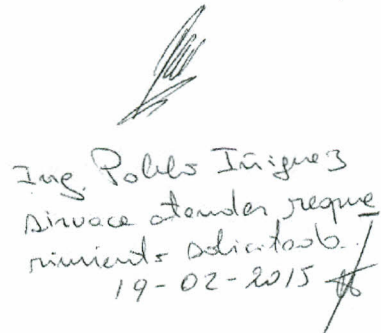 Ing. Pablo Iñiguez
sirvace atender reque
rimiento solicitado.
19-02-2015